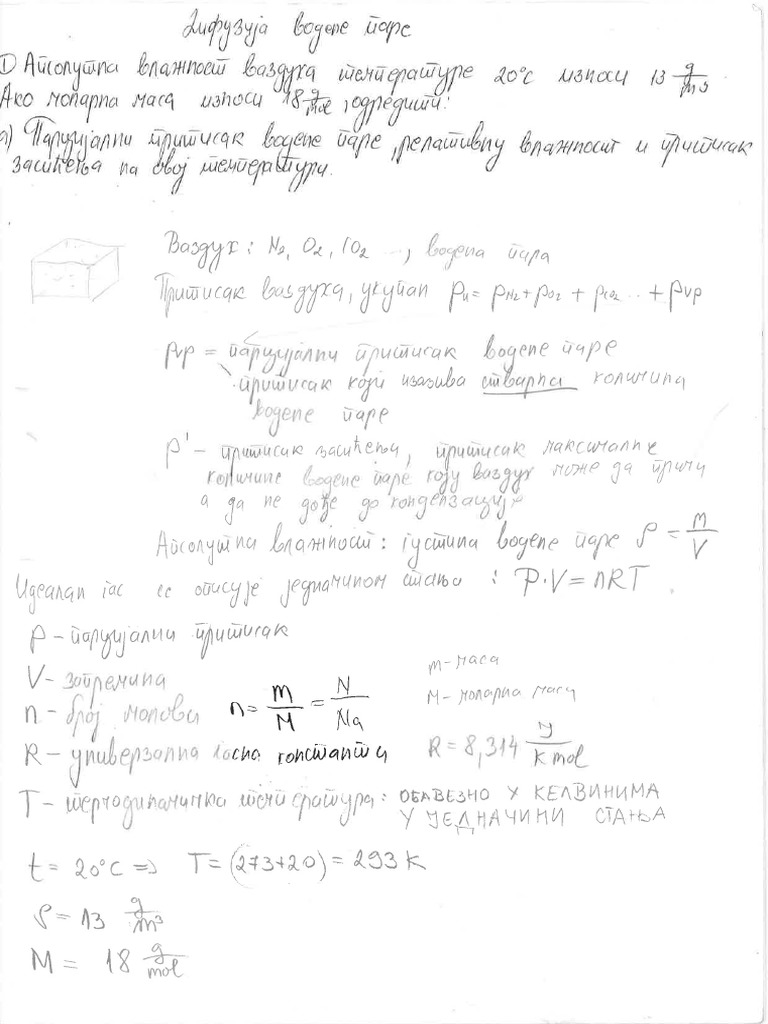 Дифузија водене паре
① Апсолутна влажност ваздуха температуре 20°C износи 13 g/m³
Ако моларна маса износи 18 g/mol, одредити:
а) Парцијални притисак водене паре, релативну влажност и притисак
засићења на овој температури.
Ваздух: N₂, O₂, CO₂ ..., водена пара
Притисак ваздуха, укупан pu = pN₂ + pO₂ + pCO₂ ... + pvp
pvp = парцијални притисак водене паре
притисак који изазива стварна количина
водене паре
p' – притисак засићења, притисак максималне
количине водене паре коју ваздух може да прими
а да не дође до кондензације
Апсолутна влажност: густина водене паре ρ = m/V
Идеалан гас се описује једначином стања: P·V = nRT.
P – парцијални притисак
V – запремина
n – број молова n = m/M = N/Na
m – маса
M – моларна маса
R – универзална гасна константа R = 8,314 J/k mol
T – термодинамичка температура: ОБАВЕЗНО У КЕЛВИНИМА
У ЈЕДНАЧИНИ СТАЊА
t = 20°C => T = (273+20) = 293 K
ρ = 13 g/m³
M = 18 g/mol